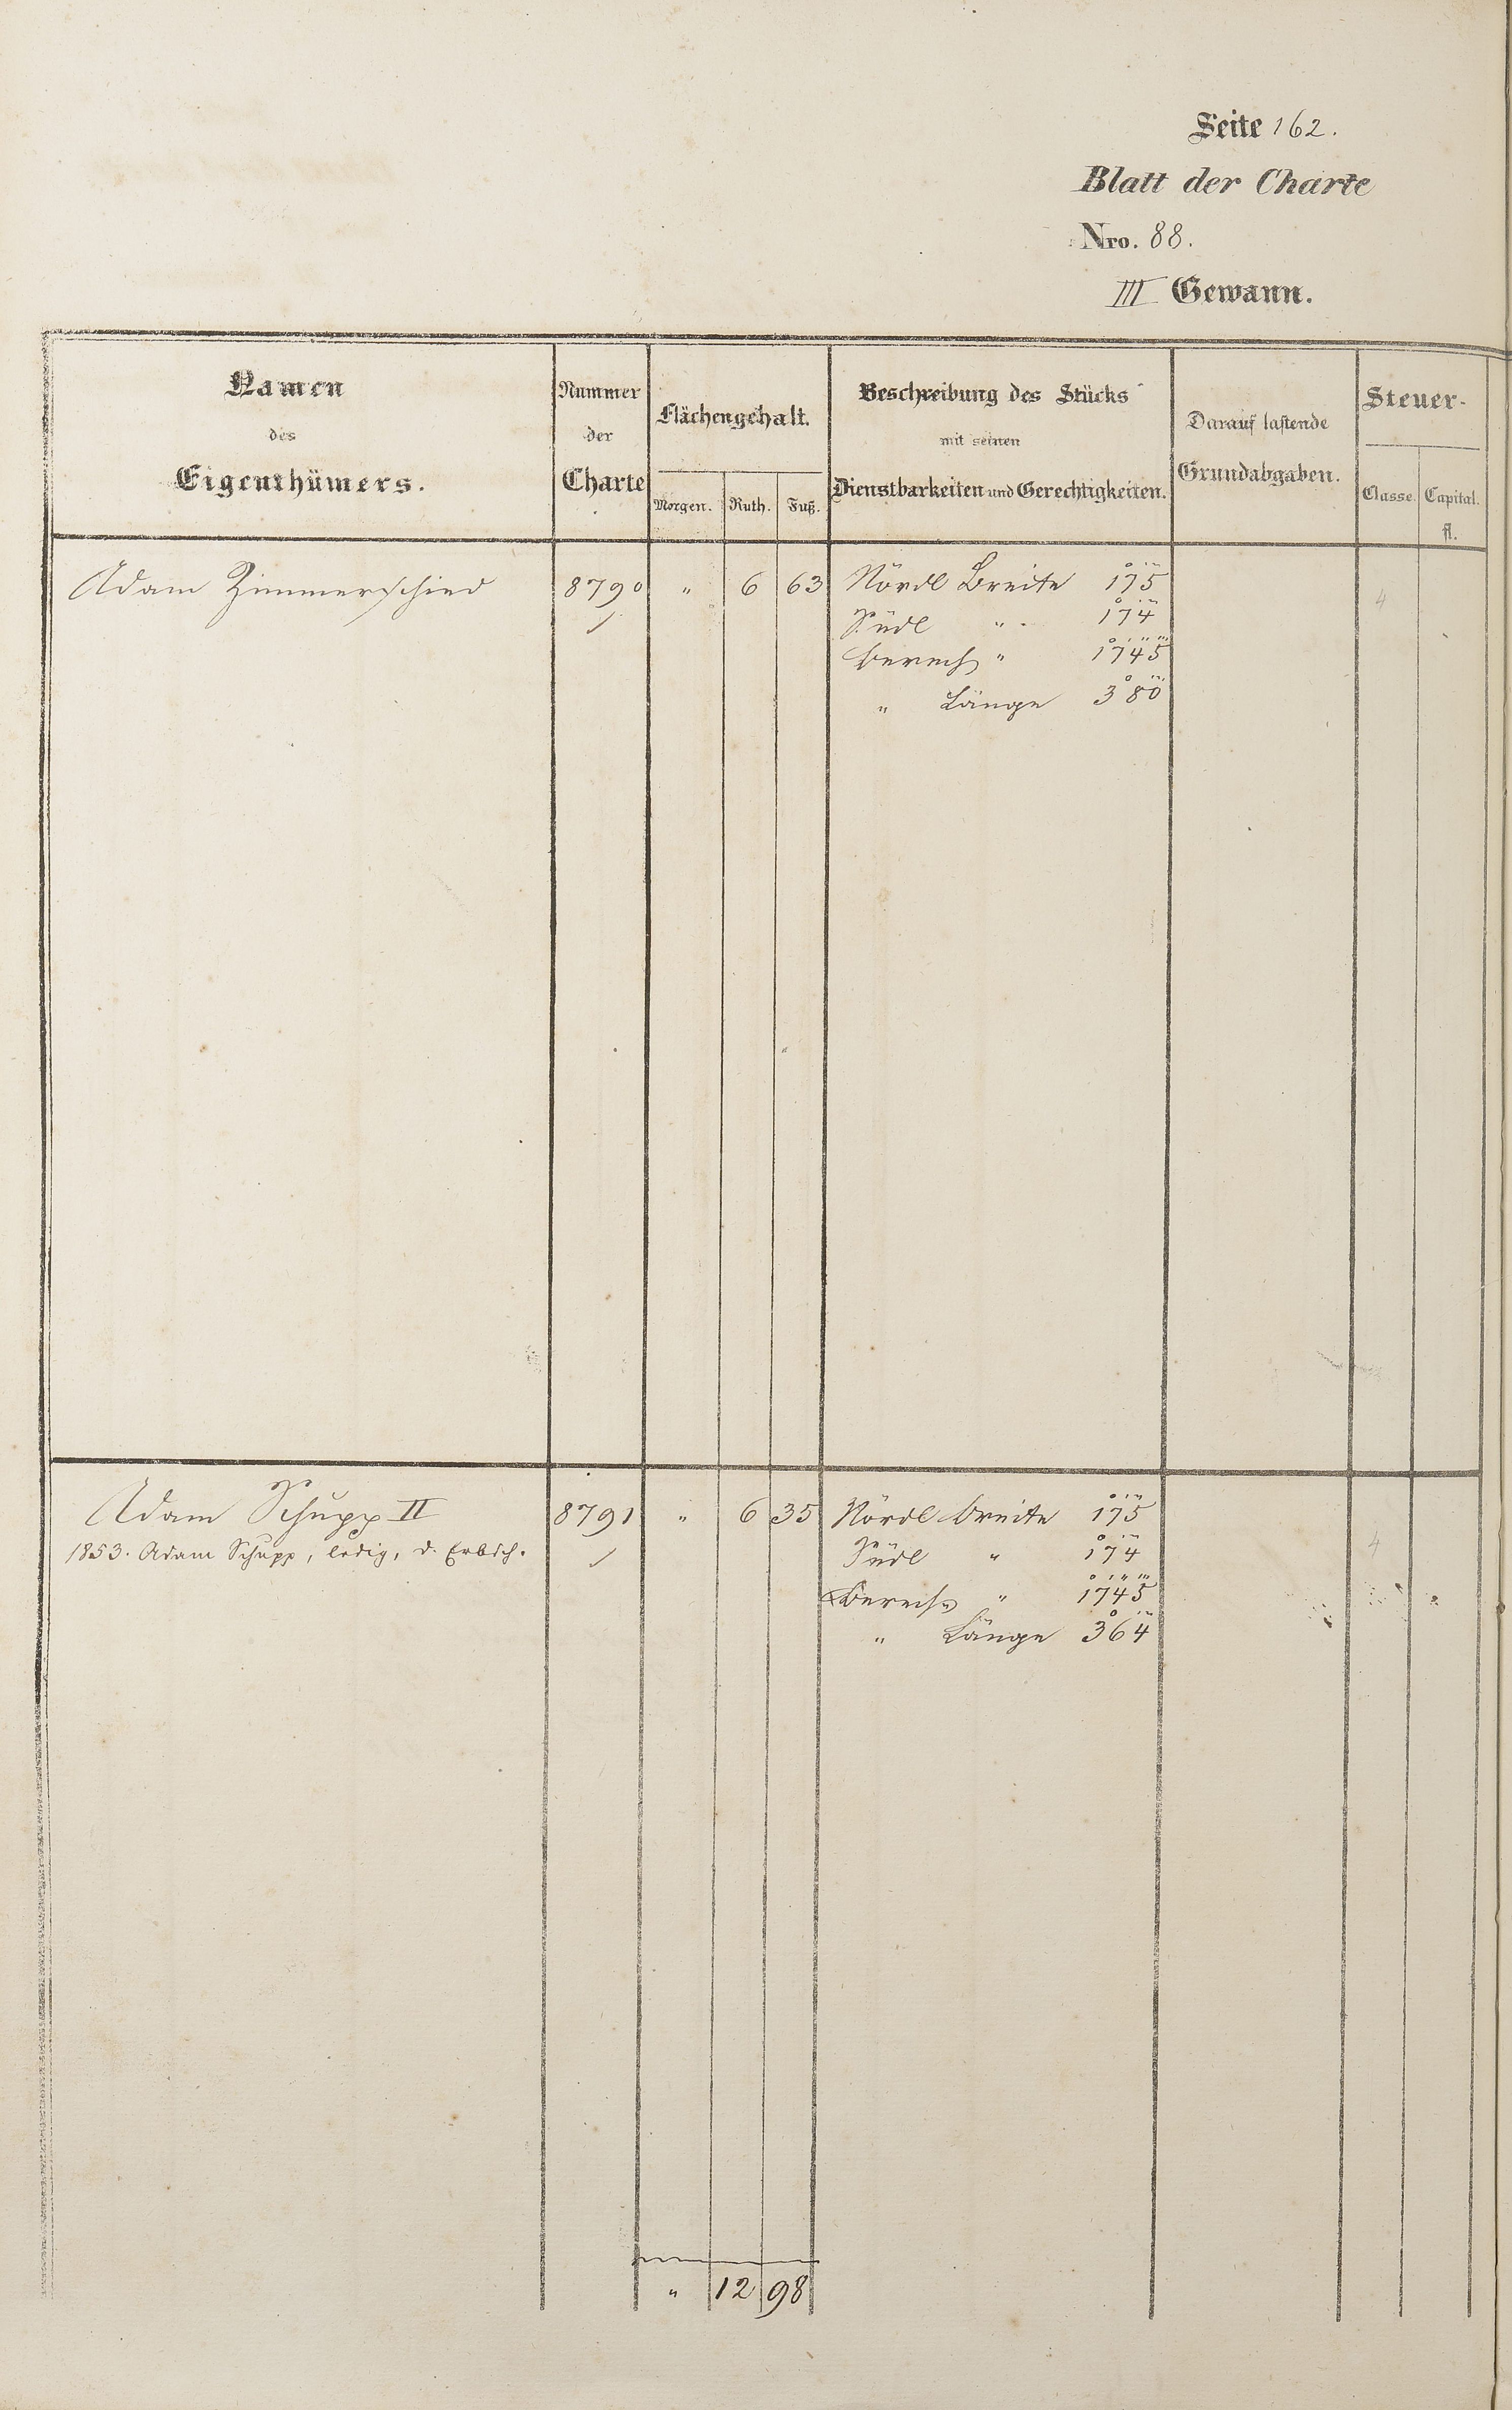 Seite 162.
Blatt der Charte
Nro. 88.
III Gewann.
Namen
des
Eigenthümers.
Nummer
der
Charte
Flächengehalt.
Morgen. Ruth. Fuß.
Beschreibung des Stücks
mit seinen
Dienstbarkeiten und Gerechtigkeiten.
Darauf lastende
Grundabgaben.
Steuer-
Classe. Capital.
fl.
Adam Zimmerschied 8790 " 6 63 Nördl Breite 175
Südl " 174
berech " 1745
" Länge 380
4
Adam Schupp II 8791 " 6 35 Nördl breite 175
1853. Adam Schupp, ledig, d. Erbsch.
Südl " 174
berech " 1745
" Länge 364
4
" 12 98